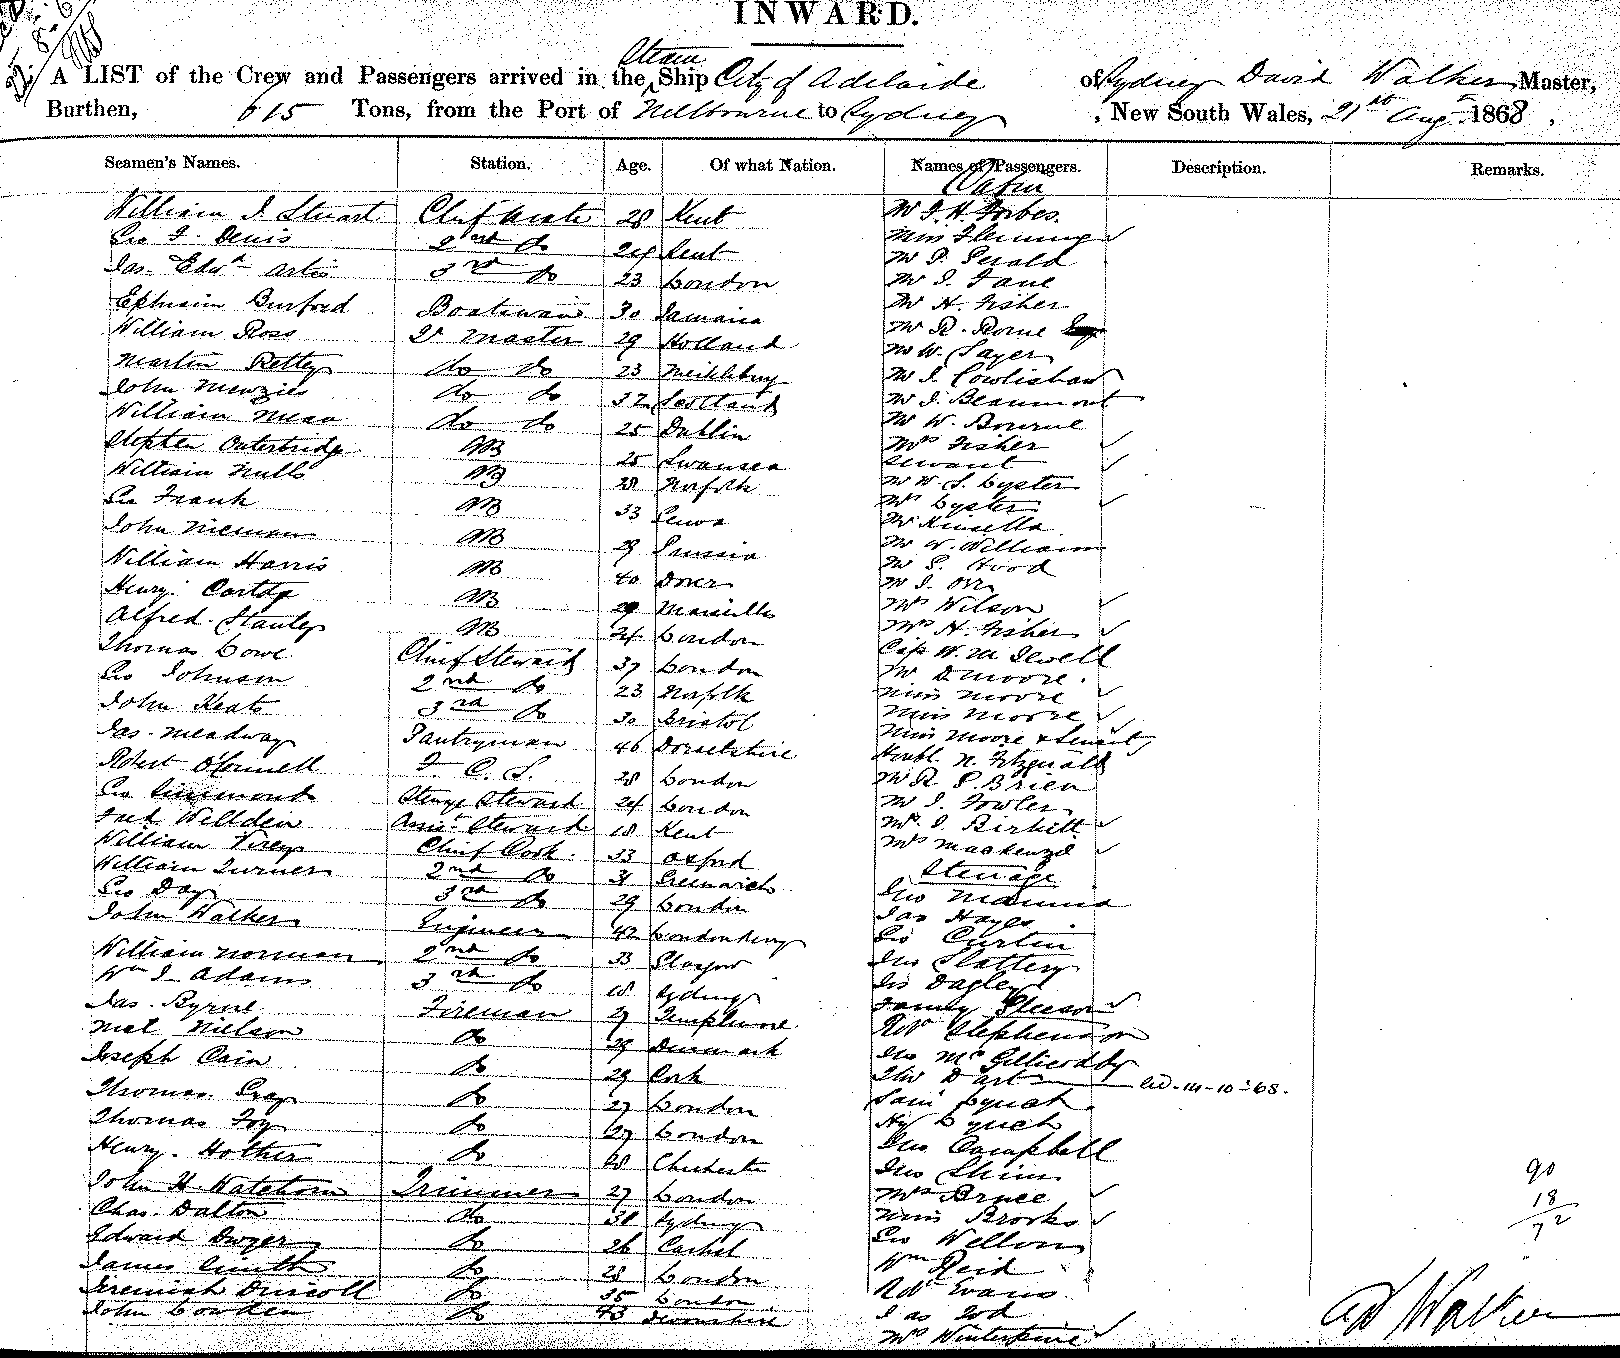 INWARD.
Steam
A LIST of the Crew and Passengers arrived in the Ship City of Adelaide of Sydney David Walker Master,
Burthen, 615 Tons, from the Port of Melbourne to Sydney, New South Wales, 21st Augt 1868.
Seamen's Names. Station. Age. Of what Nation. Names of Passengers. Description. Remarks.
Cabin
William J Stuart Chief Mate 28 Kent Mr J. H. Forbes.
Geo F. Denis 2nd do 24 Kent Miss Fleming
Mr P. Serald
Jas. Edwd Artis 3rd do 23 London Mr J. Fane
Ephraim Burford Boatswain 30 Jamaica Mr H. Fisher
William Ross Qr Master 29 Holland Mr R. Borne
Martin Rettey do do 23 Mr W. Sayer
John Menzies do do 32 Scotland Mr J. Cowlishaw
Mr J. Beaumont
William Mean do do 25 Dublin Mr W. Bourne
Stephen Outerbridge AB 25 Swansea Mrs Fisher
servant
William Mills AB 28 Norfolk Mr W. S. Lyster
Geo Frank AB 33 Genoa Mrs Lyster
Mr Kinsella
John Nieman AB 29 Prussia Mr W. William
William Harris AB 40 Dover Mr S. Hood
Mr J. Orr
Henry AB 29 Marseilles Mrs Wilson
Alfred Stanley AB 24 London Mrs H. Fisher
Thomas Lowe Chief Steward 37 London Cap W. M. Sewell
Geo Johnson 2nd do 23 Norfolk Mr D Moore.
Miss Moore
John Keats 3rd do 30 Bristol Miss Moore
Jas. Meadway Pantryman 46 Dorsetshire Miss Moore & Servant
Robert O'Connell F. C. S. 28 London Honbl N. Fitzgerald
Mr R. P. Brien
Geo Simmonds Steuge Steward 24 London Mr J. Fowler
Fred Wellden Assist Steward 18 Kent Mrs J. Birkitt
William Virey Chief Cook 33 Oxford Mrs Mackenzd
Steerage
William Turner 2nd do 31 Greenwich Jno Mannia
Geo Day 3rd do 29 London Jas Hayes
John Walker Engineer 42 Londonderry Geo Curtin
William Norman 2nd do 33 Glasgow Jno Slattery
Wm J. Adams 3rd do 18 Sydney Jno Dagley
Jas. Byrne Fireman 27 Templemore Family Gleeson
Niel Nielson do 29 Denmark Robt Stephenson
Joseph Cain do 29 Cork Jno McGillicuddy
Thos Dart
Thomas Gray do 27 London Saml Lynch
Thomas Foy do 27 London Hy Lynch
Henry Hother do 28 Chichester Jno Campbell
Jno Shinn
John H. Hatehorn Trimmer 27 London Mrs Bruce
Chas. Dalton do 30 Sydney Miss Brooks
Edward Dwyer do 26 Cashel Geo Wellom
James Smith do 28 London Wm Reid
Jeremiah Driscoll do 35 London Robt Evans
John Cowden do 43 Devonshire Jas Tod
Mrs
90
18
72
D Walker